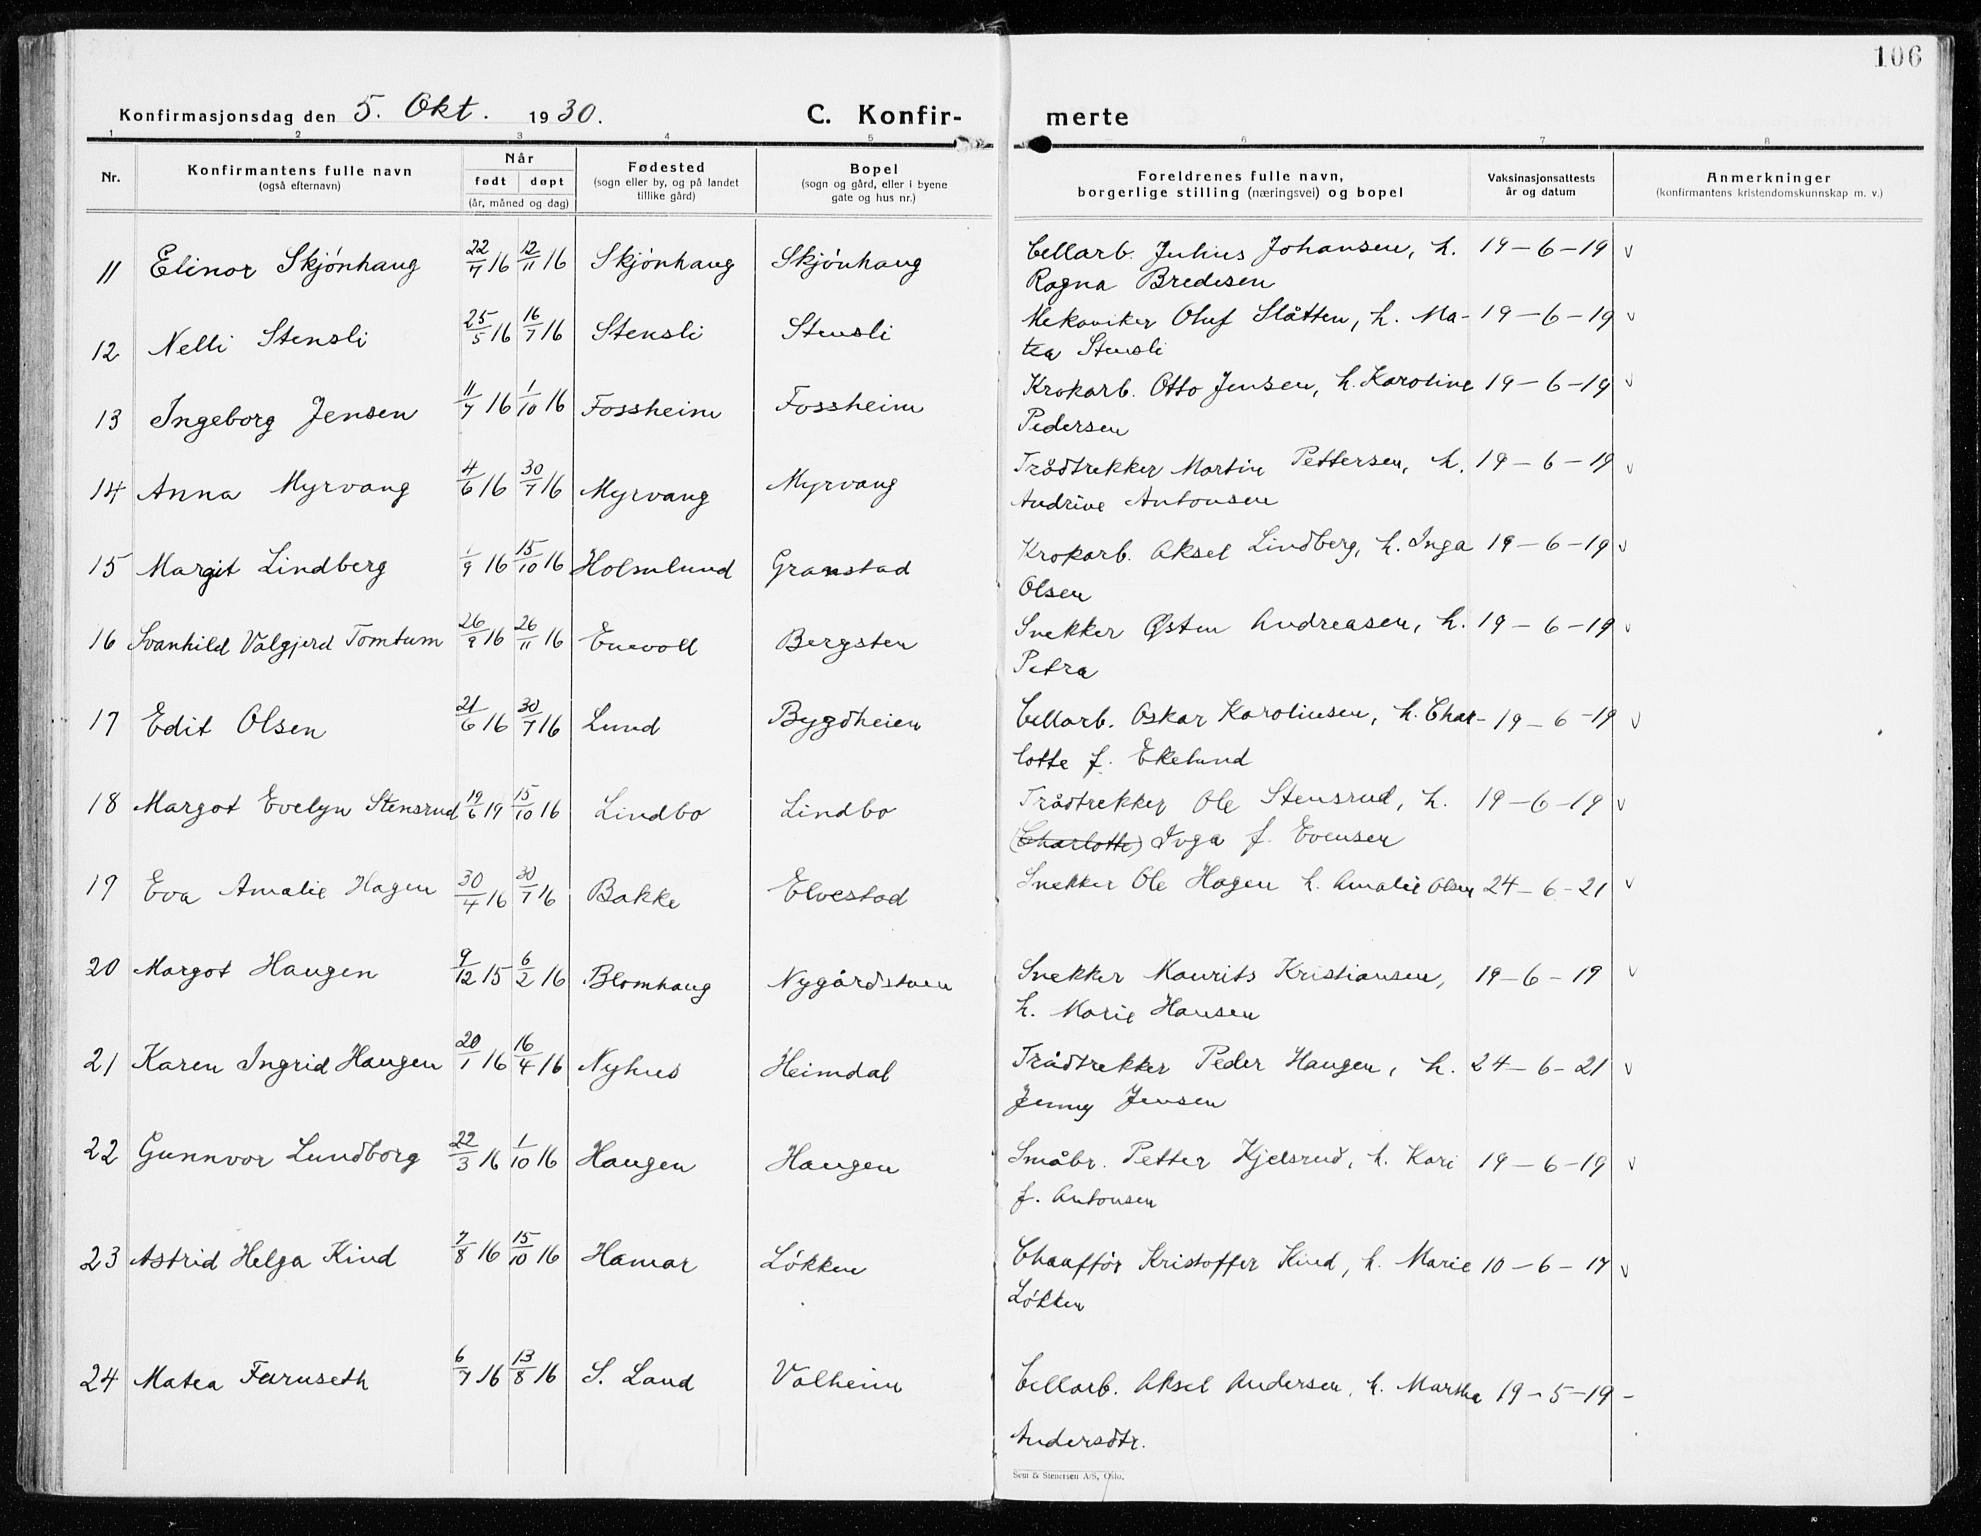 106
Konfirmasjonsdag den 5. Okt. 1930. C. Konfir- merte
1 2 3 4 5 6 7 8
Nr. Konfirmantens fulle navn (også efternavn) Når født døpt (år, måned og dag) Fødested (sogn eller by, og på landet tillike gård) Bopel (sogn og gård, eller i byene gate og hus nr.) Foreldrenes fulle navn, borgerlige stilling (næringsvei) og bopel Vaksinasjonsattests år og datum Anmerkninger (konfirmantens kristendomskunnskap m. v.)
11 Elinor Skjønhaug 22/7 16 12/11 16 Skjønhaug Skjønhaug Cellarb. Julius Johansen, h. 19-6-19 v
Ragna Bredesen
12 Nelli Stensli 25/5 16 16/7 16 Stensli Stensli Mekaniker Oluf Slåtten, h. Ma- 19-6-19 v
tea Stensli
13 Ingeborg Jensen 11/7 16 1/10 16 Fossheim Fossheim Krokarb. Otto Jensen, h. Karoline 19-6-19 v
Pedersen
14 Anna Myrvang 4/6 16 30/7 16 Myrvang Myrvang Trådtrekker Martin Pettersen, h. 19-6-19 v
Andrine Antonsen
15 Margit Lindberg 1/9 16 15/10 16 Holmlund Granstad Krokarb. Aksel Lindberg, h. Inga 19-6-19 v
Olsen
16 Svanhild Valgjerd Tomtum 26/9 16 26/11 16 Enevoll Bergsten Snekker Østen Andreasen, h. 19-6-19 v
Petra
17 Edit Olsen 21/6 16 30/7 16 Lund Bygdheien Cellarb. Oskar Karolinsen, h. Char- 19-6-19 v
lotte f. Ekelund
18 Margot Evelyn Stensrud 19/6 19 15/10 16 Lindbo Lindbo Trådtrekker Ole Stensrud, h. 19-6-19 v
(Charlotte) Inga f. Evensen
19 Eva Amalie Hagen 30/4 16 30/7 16 Bakke Elvestad Snekker Ole Hagen h. Amalie Olsen 24-6-21 v
20 Margot Haugen 9/12 15 6/2 16 Blomhaug Nygårdstuen Snekker Maurits Kristiansen, 19-6-19 v
h. Marie Hansen
21 Karen Ingrid Haugen 20/1 16 16/4 16 Nyhus Heimdal Trådtrekker Peder Haugen, h. 24-6-21 v
Jenny Jensen
22 Gunnvor Lundborg 22/3 16 1/10 16 Haugen Haugen Småbr. Petter Kjelsrud, h. Kari 19-6-19 v
f. Antonsen
23 Astrid Helga Kind 7/8 16 15/10 16 Hamar Løkken Chauffør Kristoffer Kind, h. Marie 10-6-17 v
Løkken
24 Matea Faruseth 6/7 16 13/8 16 S. Land Valheim Cellarb. Aksel Andersen, h. Martha 19-5-19 -
Andersdtr.
Sem & Stenersen A/S, Oslo.